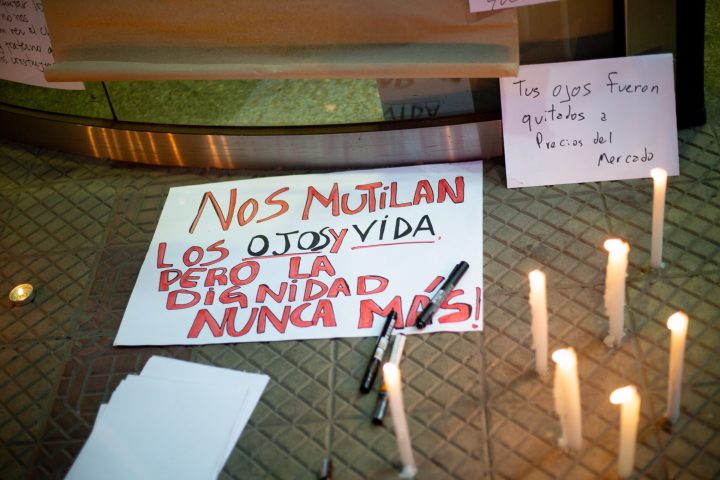 no nos
NOS MUTILAN
LOS OJOS Y VIDA
PERO LA
DIGNIDAD
NUNCA MÁS!
Tus ojos fueron
quitados a
Precios del
Mercado